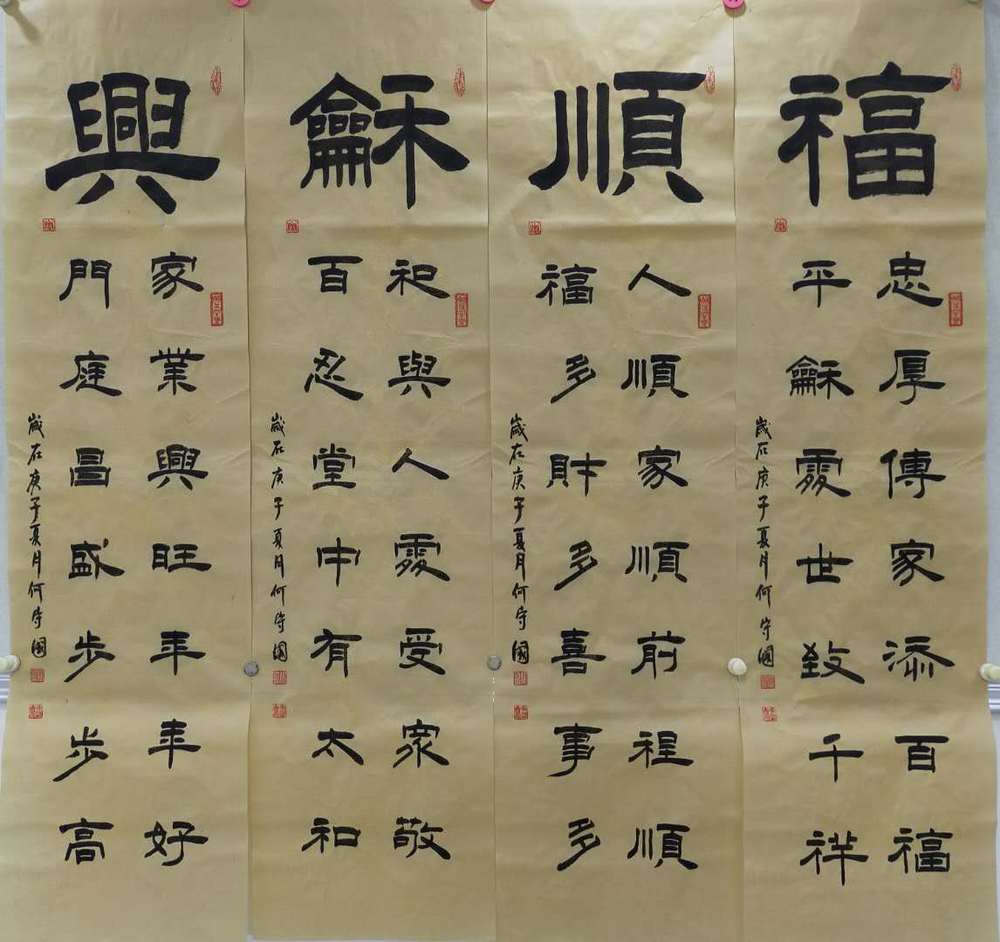 福
忠厚傳家添百福
平龢處世致千祥
歲在庚子夏月何守國
順
人順家順前程順
福多財多喜事多
歲在庚子夏月何守國
龢
與人處受家敬
百忍堂中有太和
歲在庚子夏月何守國
興
家業興旺年年好
門庭昌盛步步高
歲在庚子夏月何守國